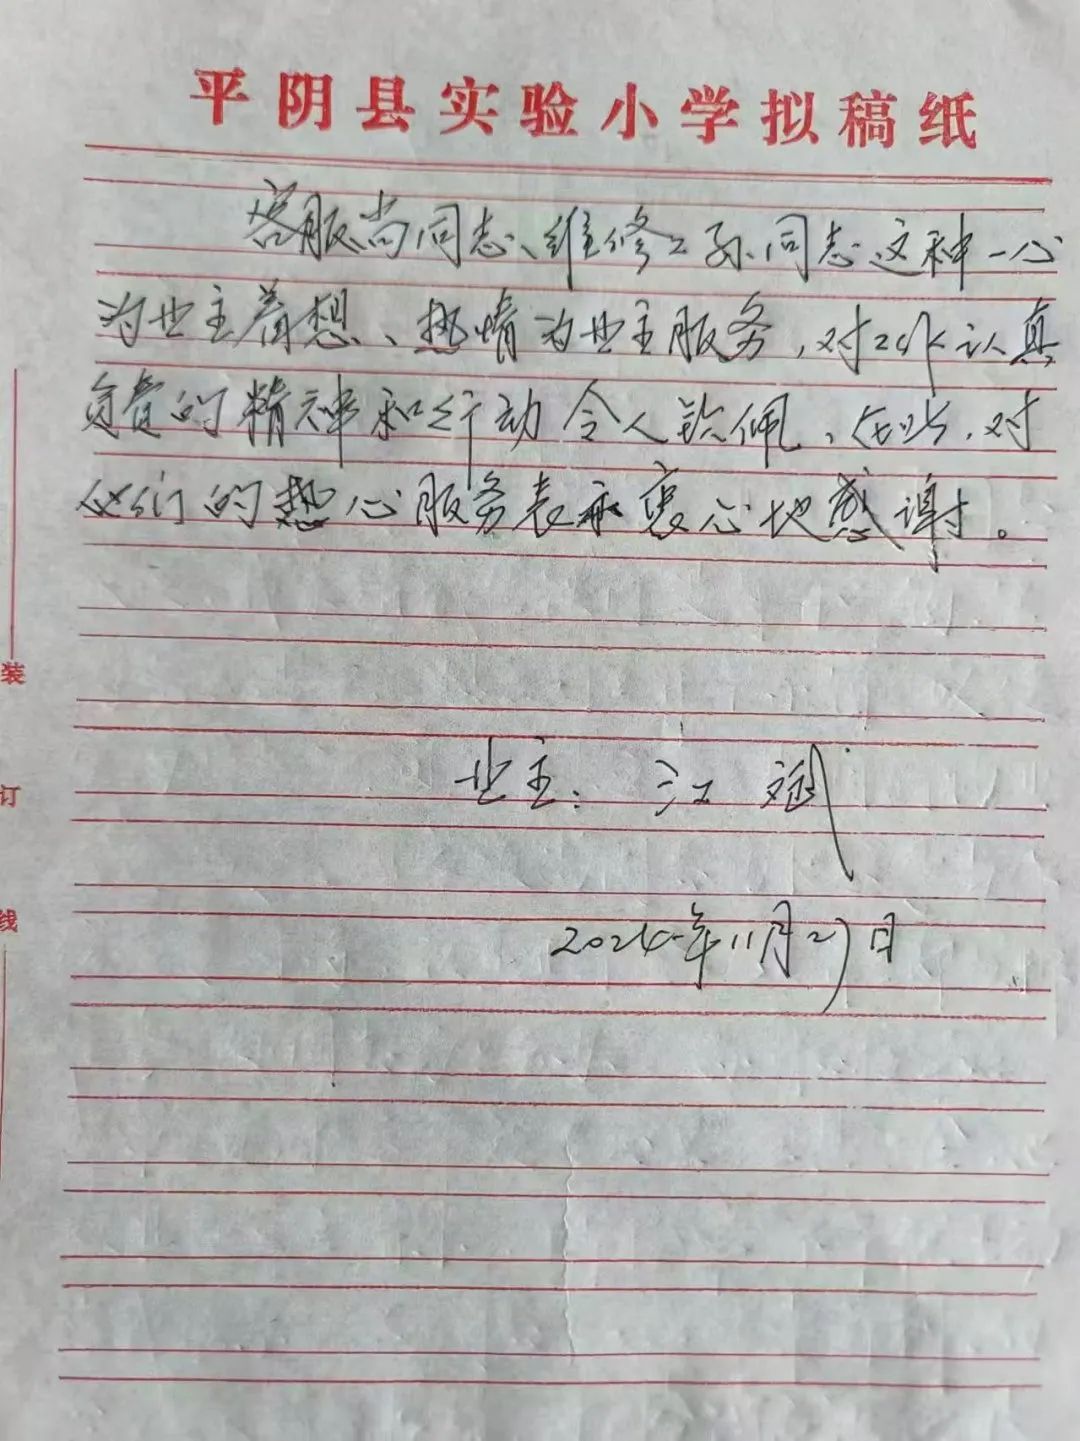 平阴县实验小学拟稿纸
客服尚同志、维修工孙同志这种一心
为业主着想、热情为业主服务,对工作认真
负责的精神和行动令人钦佩、在此,对
他们的热心服务表示衷心地感谢。
业主:江斌
2024年11月27日
装
订
线